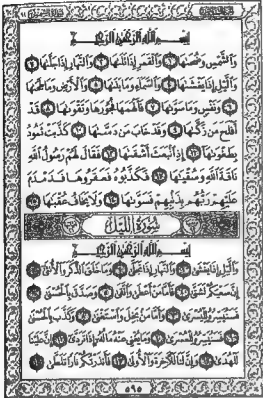 بِسْمِ ٱللَّهِ ٱلرَّحْمَٰنِ ٱلرَّحِيمِ
وَٱلشَّمْسِ وَضُحَىٰهَا ١ وَٱلْقَمَرِ إِذَا تَلَىٰهَا ٢ وَٱلنَّهَارِ إِذَا جَلَّىٰهَا ٣
وَٱلَّيْلِ إِذَا يَغْشَىٰهَا ٤ وَٱلسَّمَآءِ وَمَا بَنَىٰهَا ٥ وَٱلْأَرْضِ وَمَا طَحَىٰهَا
٦ وَنَفْسٍ وَمَا سَوَّىٰهَا ٧ فَأَلْهَمَهَا فُجُورَهَا وَتَقْوَىٰهَا ٨ قَدْ
أَفْلَحَ مَن زَكَّىٰهَا ٩ وَقَدْ خَابَ مَن دَسَّىٰهَا ١٠ كَذَّبَتْ ثَمُودُ
بِطَغْوَىٰهَآ ١١ إِذِ ٱنۢبَعَثَ أَشْقَىٰهَا ١٢ فَقَالَ لَهُمْ رَسُولُ ٱللَّهِ
نَاقَةَ ٱللَّهِ وَسُقْيَٰهَا ١٣ فَكَذَّبُوهُ فَعَقَرُوهَا فَدَمْدَمَ
عَلَيْهِمْ رَبُّهُم بِذَنۢبِهِمْ فَسَوَّىٰهَا ١٤ وَلَا يَخَافُ عُقْبَٰهَا ١٥
سُورَةُ اللَّيْلِ
بِسْمِ ٱللَّهِ ٱلرَّحْمَٰنِ ٱلرَّحِيمِ
وَٱلَّيْلِ إِذَا يَغْشَىٰ ١ وَٱلنَّهَارِ إِذَا تَجَلَّىٰ ٢ وَمَا خَلَقَ ٱلذَّكَرَ وَٱلْأُنثَىٰٓ ٣
إِنَّ سَعْيَكُمْ لَشَتَّىٰ ٤ فَأَمَّا مَنْ أَعْطَىٰ وَٱتَّقَىٰ ٥ وَصَدَّقَ بِٱلْحُسْنَىٰ ٦
فَسَنُيَسِّرُهُۥ لِلْيُسْرَىٰ ٧ وَأَمَّا مَنۢ بَخِلَ وَٱسْتَغْنَىٰ ٨ وَكَذَّبَ بِٱلْحُسْنَىٰ
٩ فَسَنُيَسِّرُهُۥ لِلْعُسْرَىٰ ١٠ وَمَا يُغْنِى عَنْهُ مَالُهُۥٓ إِذَا تَرَدَّىٰٓ ١١ إِنَّ عَلَيْنَا
لَلْهُدَىٰ ١٢ وَإِنَّ لَنَا لَلْءَاخِرَةَ وَٱلْأُولَىٰ ١٣ فَأَنذَرْتُكُمْ نَارًا تَلَظَّىٰ ١٤
٥٩٥